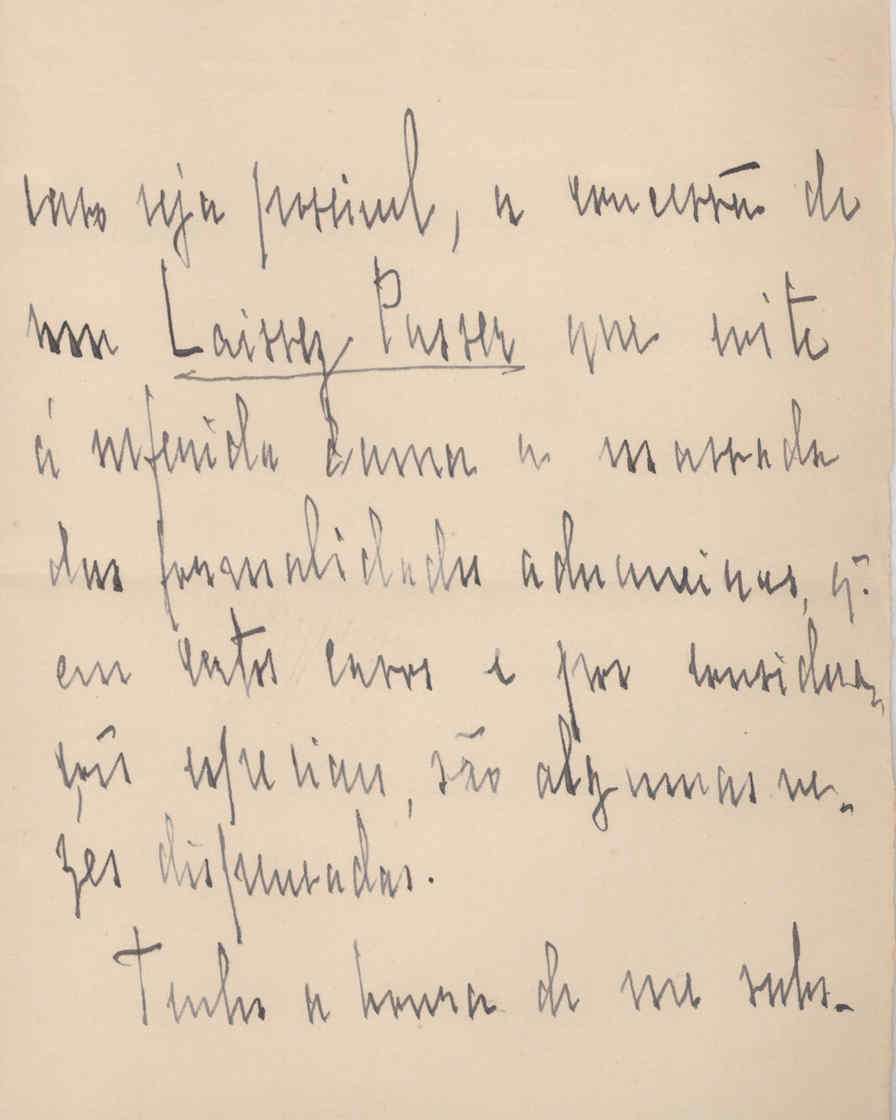 caso seja possivel, a concessão de
um Laissez Passer que evite
á referida Dama a massada
das formalidades aduaneiras, q.
em certos casos e por considera-
ções especiaes, são algumas ve-
zes dispensadas.
Tenho a honra de me subs-